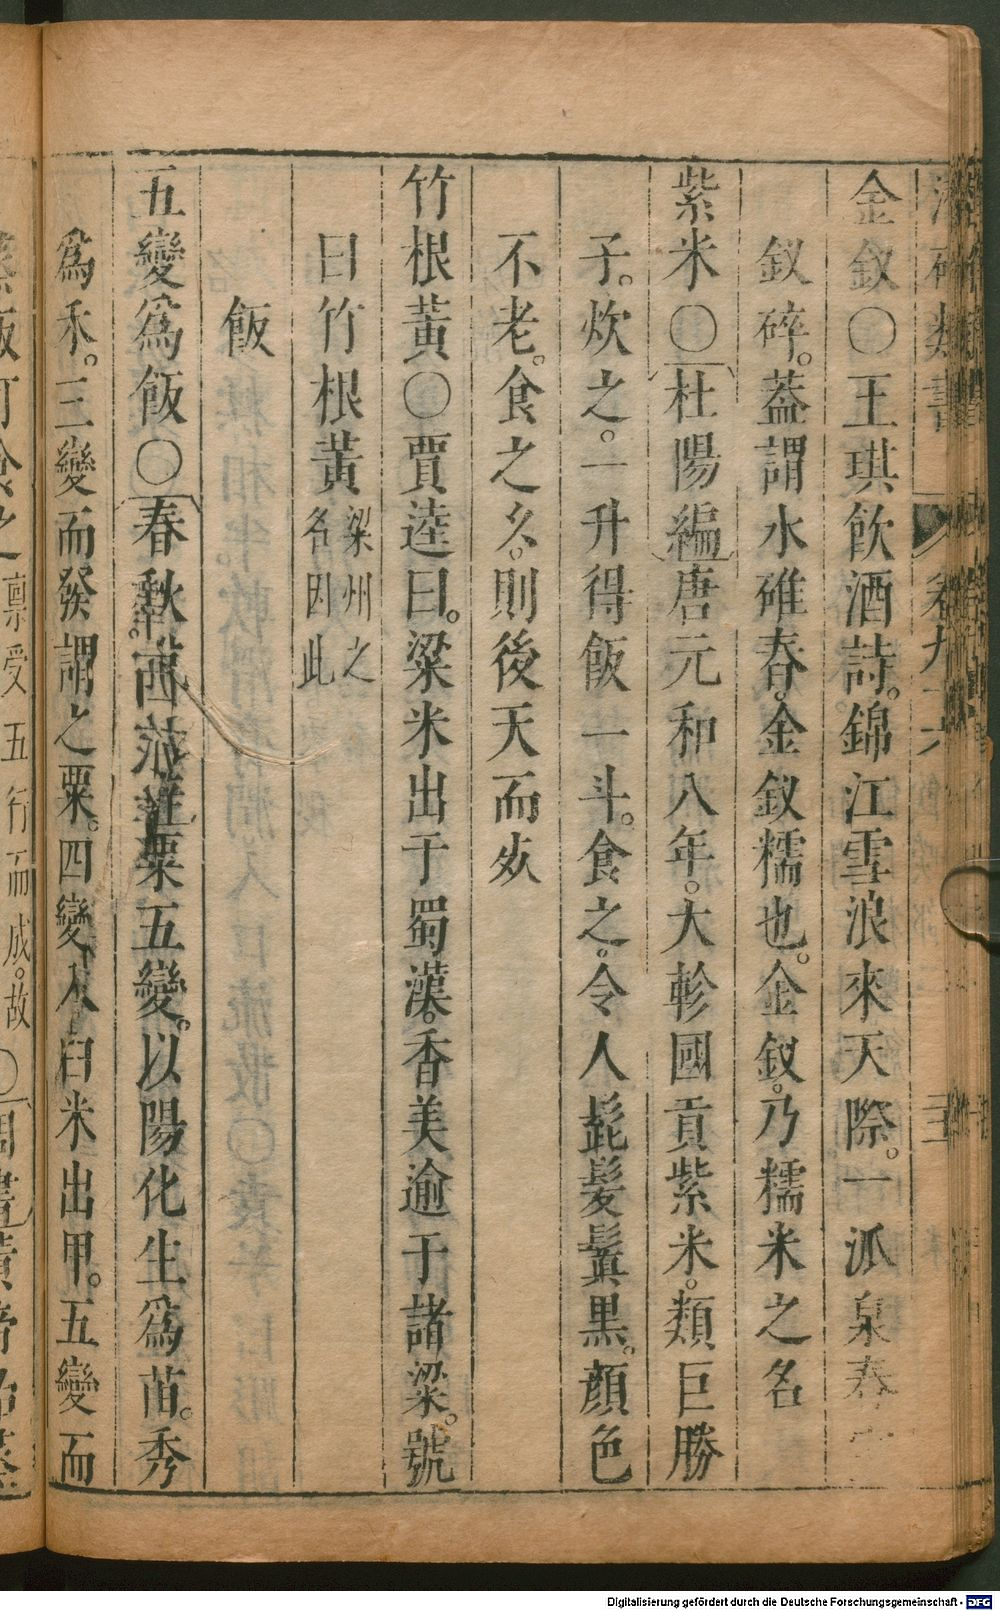 類書
卷九十六
三
金釵〇王琪飮酒詩。錦江雪浪來天際。一派泉舂
釵碎。葢謂水碓舂。金釵糯也。金釵。乃糯米之名
紫米〇杜陽編唐元和八年。大軫國貢紫米。類巨勝
子。炊之。一升得飯一斗。食之。令人髭髮鬒黑。顏色
不老。食之久。則後天而歿
竹根黃〇賈逵曰。粱米出于蜀漢。香美逾于諸粱。號
曰竹根黃粱州之名因此
飯
五變爲飯〇春秋。說苑粟五變。以陽化生爲苗。秀
爲禾。三變而粲謂之粟。四變入臼米出甲。五變而
蒸飯可食之稟受五行而成。故〇周書黃帝始蒸
Digitalisierung gefördert durch die Deutsche Forschungsgemeinschaft - DFG